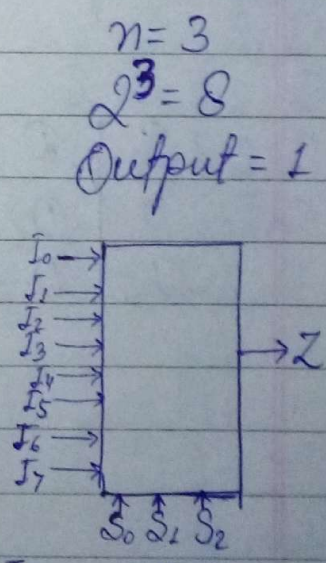 n = 3
2³ = 8
Output = 1
I₀
I₁
I₂
I₃
Z
I₄
I₅
I₆
I₇
S₀ S₁ S₂